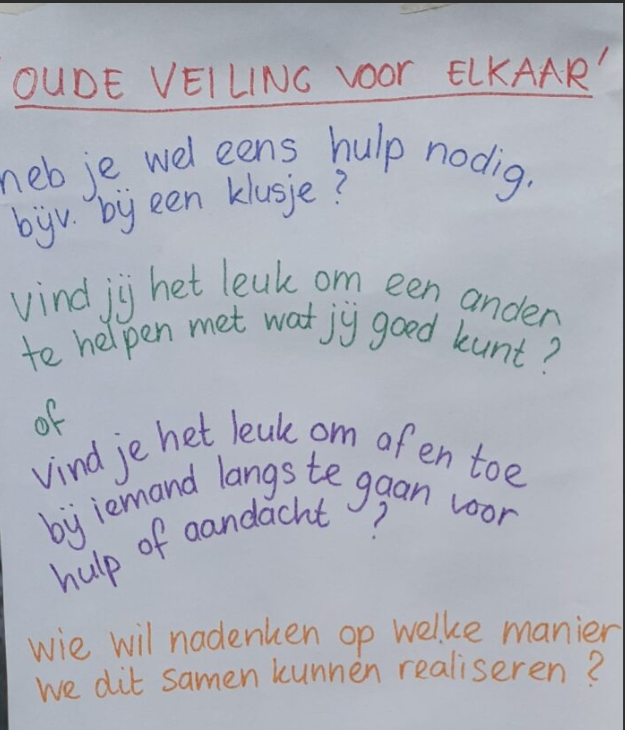 'OUDE VEILING voor ELKAAR'
heb je wel eens hulp nodig.
bijv. bij een klusje?
Vind jij het leuk om een ander
te helpen met wat jij goed kunt?
of
Vind je het leuk om af en toe
bij iemand langs te gaan voor
hulp of aandacht?
Wie wil nadenken op welke manier
we dit samen kunnen realiseren?